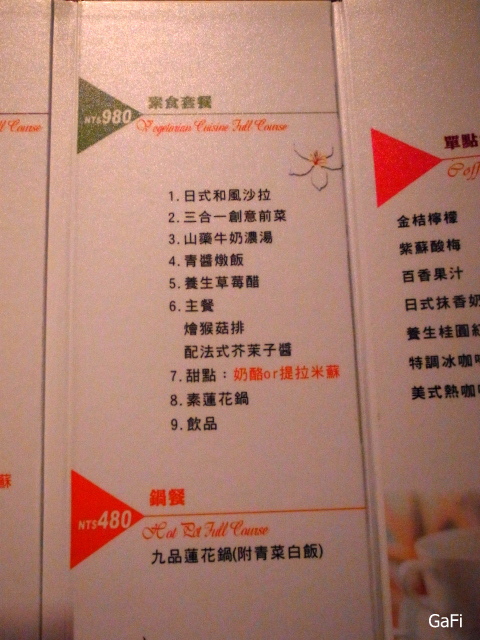 l Course
蘇
NT$980
素食套餐
Vegetarian Cuisine Full Course
1.日式和風沙拉
2.三合一創意前菜
3.山藥牛奶濃湯
4.青醬燉飯
5.養生草莓醋
6.主餐
燴猴菇排
配法式芥茉子醬
7.甜點：奶酪or提拉米蘇
8.素蓮花鍋
9.飲品
NT$480
鍋餐
Hot Pot Full Course
九品蓮花鍋(附青菜白飯)
單點
Coff
金桔檸檬
紫蘇酸梅
百香果汁
日式抹香奶
養生桂圓紅
特調冰咖
美式熱咖
GaFi